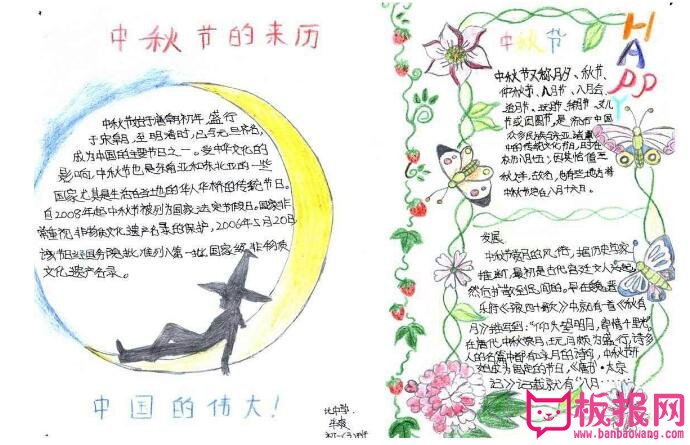 中秋节的来历
中秋节始于唐朝初年,盛行
于宋朝,至明清时,已与元旦齐名,
成为中国的主要节日之一。受中华文化的
影响,中秋节也是东南亚和东北亚的一些
国家尤其是生活在当地的华人华侨的传统节日。
自2008年起中秋节被列为国家法定节假日。国家非
常重视非物质文化遗产名录的保护,2006年5月20日,
该节日经国务院批准列入第一批国家级非物质
文化遗产名录。
中国的伟大!
中秋节
HAPPY
中秋节又称月夕、秋节、
仲秋节、八月节、八月会、
追月节、玩月节、拜月节、女儿
节或团圆节,是流行于中国
众多民族与东亚诸国
中的传统文化节日,时在
农历八月十五;因其恰值三
秋之半,故名,也有些地方将
中秋节定在八月十六日。
发展
中秋节赏月的风俗,据历史学家
推断,最初是古代宫廷文人兴起,
然后扩散至民间的。早在魏晋
乐府《子夜四十歌》中就有一首《秋有
月》描写到:“仰头望明月,寄情千里光。”
在唐代,中秋赏月、玩月颇为盛行,许多
人的名篇中都有咏月的诗句,中秋节开
始成为固定的节日,《唐书·太宗
记》记载就有“八月
板报网
www.banbaowang.com